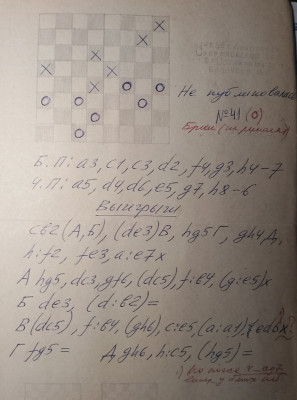 Не публиковалась
№41 (0)
Б. П: a3, c1, c3, d2, f4, g3, h4 – 7
Ч. П: a5, d4, d6, e5, g7, h8 – 6
Выигрыш
cb2 (А, Б), (de3) В, hg5 Г, gh4 Д,
h:f2, fe3, a:e7x
А hg5, dc3, gf6, (dc5) f:b4, (g:e5)x
Б de3, (d:b2)=
В (dc5), f:b4, (gh6), c:e5, (a:a1),
Г fg5 = Д gh6, h:c5, (hg5) =